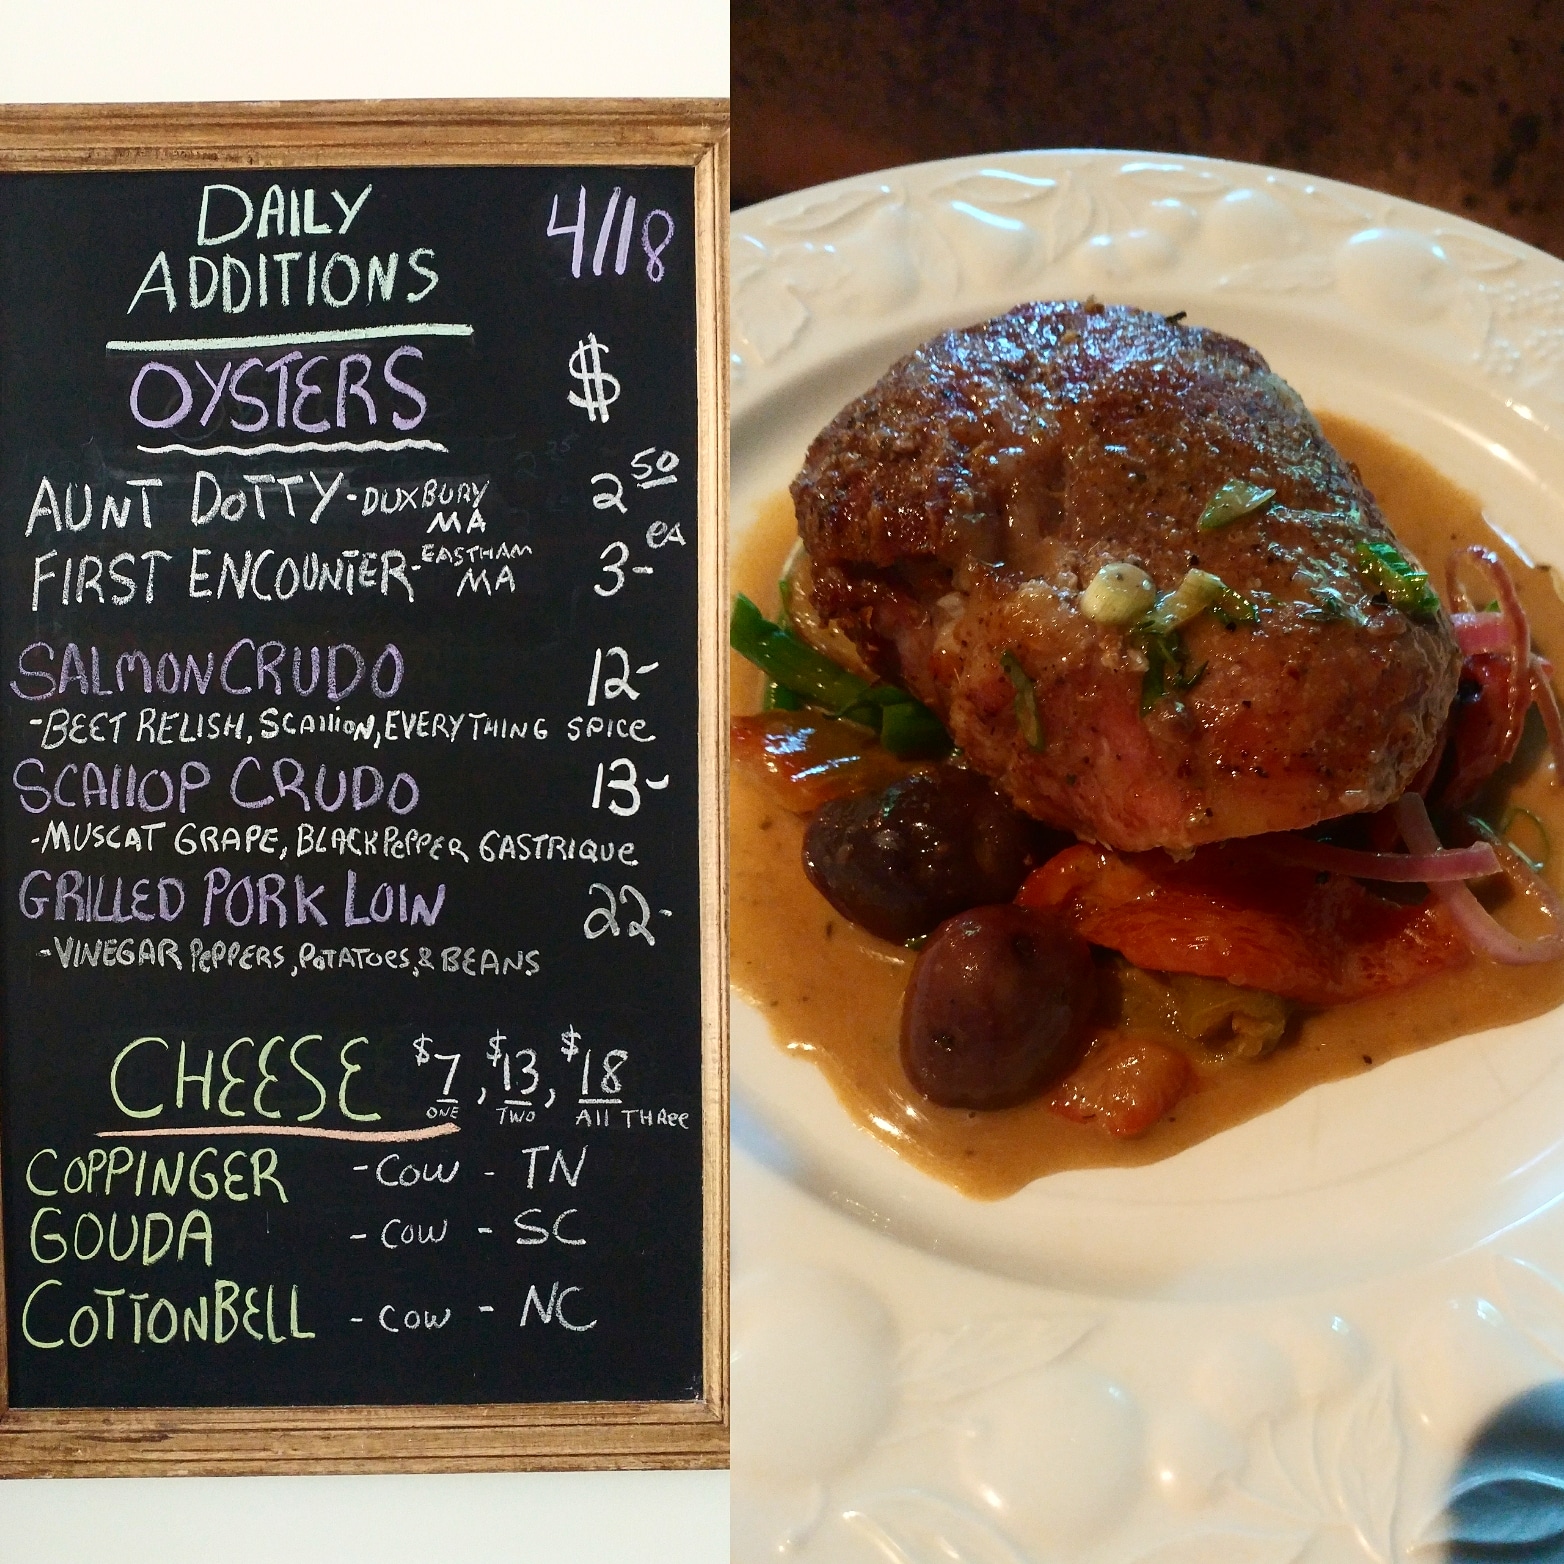 DAILY 4/18
ADDITIONS
OYSTERS $
AUNT DOTTY - DUXBURY MA 2 50 ea
FIRST ENCOUNTER - EASTHAM MA 3-
SALMON CRUDO 12-
- BEET RELISH, SCALLION, EVERYTHING SPICE
SCALLOP CRUDO 13-
- MUSCAT GRAPE, BLACK PEPPER GASTRIQUE
GRILLED PORK LOIN 22-
- VINEGAR PEPPERS, POTATOES, & BEANS
CHEESE $7, $13, $18
ONE TWO ALL THREE
COPPINGER - COW - TN
GOUDA - COW - SC
COTTONBELL - COW - NC